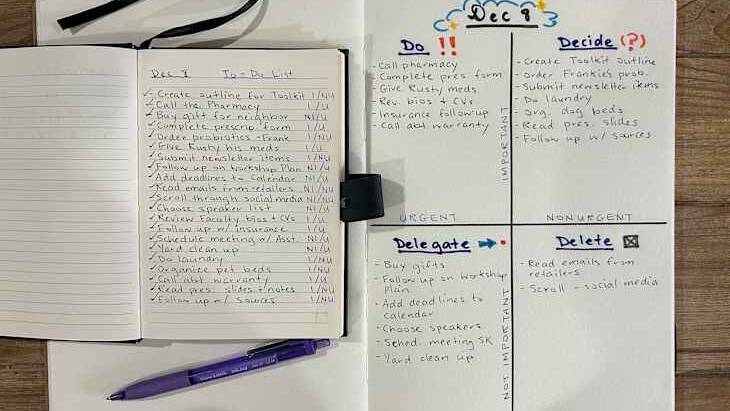 Dec 8 To-Do List
✓ Create outline for Toolkit I/NU
✓ Call the Pharmacy I/U
✓ Buy gift for neighbor NI/U
✓ Complete prescrip form I/U
✓ Order probiotics-Frank I/NU
✓ Give Rusty his meds I/U
✓ Submit newsletter items I/NU
✓ Follow up on Workshop Plan NI/U
✓ Add deadlines to Calendar NI/U
✓ Read emails from retailers NI/NU
✓ Scroll through social media NI/NU
✓ Choose speaker list NI/U
✓ Review Faculty bios + CVs I/U
✓ Follow up w/ insurance I/U
✓ Schedule meeting w/ Asst. NI/U
✓ Yard clean up NI/U
✓ Do laundry I/NU
✓ Organize pet beds I/NU
✓ Call abt warranty I/U
✓ Read pres. slides + notes I/NU
✓ Follow up w/ sources I/NU
Dec 8
Do !!
- Call pharmacy
- Complete pres. form
- Give Rusty meds
- Rev. bios + CVs
- Insurance follow-up
- Call abt warranty
URGENT
IMPORTANT
Decide (?)
- Create Toolkit Outline
- Order Frankie's prob.
- Submit newsletter items
- Do laundry
- Org. dog beds
- Read pres. slides
- Follow up w/ sources
NONURGENT
Delegate
- Buy gifts
- Follow up on workshop
plan
- Add deadlines to
calendar
- Choose speakers
- Sched. meeting SK
- Yard clean up
NOT IMPORTANT
Delete
- Read emails from
retailers
- Scroll - social media